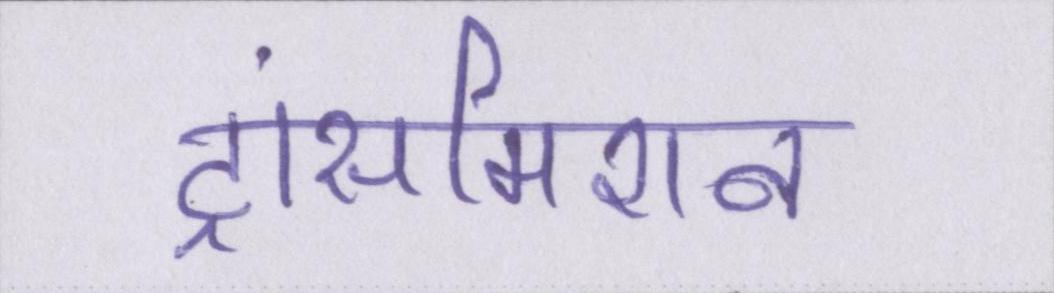 ट्रांसमिशन